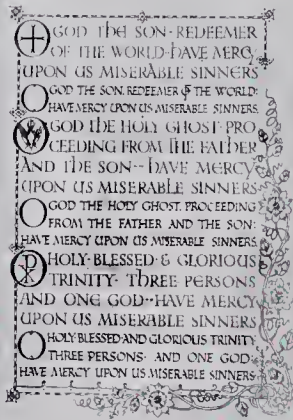 O GOD THE SON · REDEEMER
OF THE WORLD · HAVE MERCY
UPON US MISERABLE SINNERS
O GOD THE SON, REDEEMER OF THE WORLD:
HAVE MERCY UPON US MISERABLE SINNERS.
O GOD THE HOLY GHOST · PRO
CEEDING FROM THE FATHER
AND THE SON -- HAVE MERCY
UPON US MISERABLE SINNERS
O GOD THE HOLY GHOST, PROCEEDING
FROM THE FATHER AND THE SON:
HAVE MERCY UPON US MISERABLE SINNERS
O HOLY · BLESSED · & GLORIOUS
TRINITY · THREE PERSONS
AND ONE GOD -- HAVE MERCY
UPON US MISERABLE SINNERS
O HOLY BLESSED · AND GLORIOUS TRINITY
THREE PERSONS · AND ONE GOD ·
HAVE MERCY UPON US MISERABLE SINNERS ·